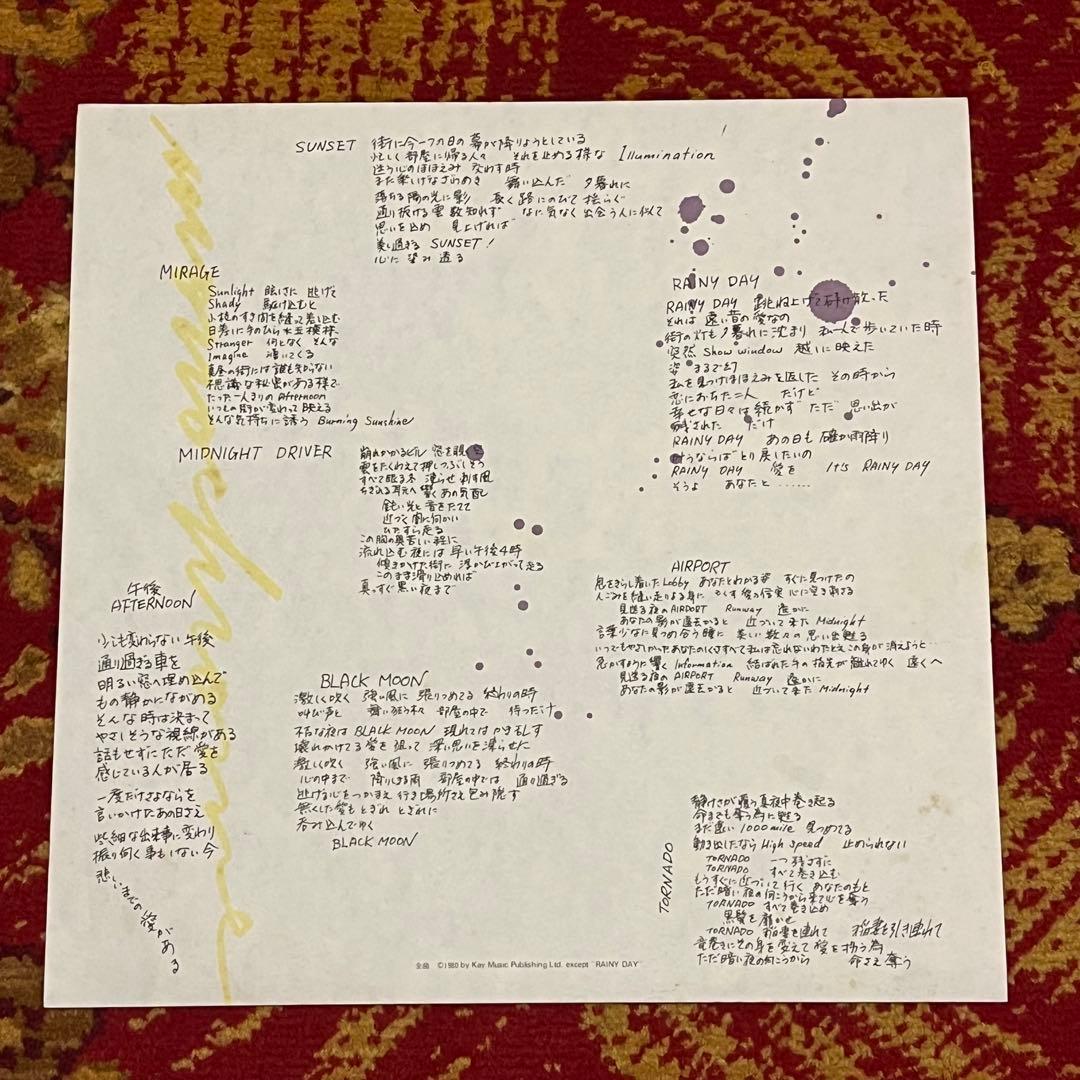 SUNSET
街に今一つの日の幕が降りようとしている
忙しく部屋に帰る人々 それを止める様な Illumination
迷う心のほほえみ 交わす時
また楽しげなざわめき 舞い込んだ 夕暮れに
落ちる陽の光に影 長く路にのびて 揺らぐ
通り抜ける雲 数知れず なに気なく出会う人に似て
思いを止め 見上げれば
美し過ぎる SUNSET!
心に 染み 透る
MIRAGE
Sunlight 眩しさに 逃げて
Shady 駆け込むと
小枝のすき間を縫って 差し込む
日差しに 手のひら 水玉模様
Stranger 何となく そんな
Imagine 湧いてくる
真昼の街には 誰も知らない
不思議な秘密がある様で
たった一人きりの Afternoon
いつもの街が変わって 映える
そんな気持ちに誘う Burning Sunshine
MIDNIGHT DRIVER
崩れかかるビル 窓を
雲をたくわえて 押しつぶしそう
すべて眠る冬 凍らせ 刺す風
ちぎれる耳元へ 響く あの気配
鈍い光と 音をたてて
近づく 闇に向かい
ひたすら走る
この胸の奥 苦しい程に
流れ込む夜には 早い午後4時
傾きかけた街に 浮かび上がって 走る
このまま滑り込めれば
真っすぐ黒い夜まで
午後
AFTERNOON
少しも変わらない 午後
通り過ぎる車を
明るい窓へ埋め込んで
もの静かにながめる
そんな時は決まって
やさしそうな視線がある
話もせずに ただ 愛を
感じている人が居る
一度だけさよならを
言いかけたあの日さえ
些細な出来事に変わり
振り向く事もしない 今
悲しいまでの 愛がある
BLACK MOON
激しく吹く 強い風に 張りつめてる 終わりの時
叫び声と 舞い狂う木々 部屋の中で 待っただけ
不吉な夜は BLACK MOON 現れては かき乱す
壊れかけてる 愛を 狙って 深い思いを 凍らせに
激しく吹く 強い風に 張りつめてる 終わりの時
心の中まで 降りしきる雨 部屋の中では 通り過ぎる
逃げる心をつかまえ 行き場所さえ包み隠す
無くした愛も とぎれ とぎれに
呑み込んでゆく
BLACK MOON
RAINY DAY
RAINY DAY 跳ね上げて 砕け散った
それは 遠い昔の愛なの
街の灯も夕暮れに 沈まり 私一人で 歩いていた時
突然 Show window 越しに 映えた
姿 まるで幻
私を見つけ ほほえみを返した その時から
恋におちた二人 だけど
幸せな日々は 続かず ただ 思い出が
残された だけ
RAINY DAY あの日も 確か雨降り
叶うならば とり戻したいの
RAINY DAY 愛を It's RAINY DAY
そうよ あなたと ……
AIRPORT
息をきらし着いた Lobby あなたとわかる姿 すぐに見つけたの
人ごみを縫い走りよる身に もくす 後の信実 心に突き刺さる
見送る夜の AIRPORT Runway 遥かに
あなたの影が遠去かると 近づいて来た Midnight
言葉少なに 見つめ合う瞳に 美しい数々の思い出 甦る
いつでもやさしかった あなたのしぐさすべて 私は忘れない たとえこの身が 消えようと…
急かすように響く Information 結ばれた 手の指先が 離れてゆく 遠くへ
見送る夜の AIRPORT Runway 遥かに
あなたの影が遠去かると 近づいて来た Midnight
TORNADO
静けさが覆う 真夜中 巻き起る
命までも奪う為に 甦る
まだ遠い 1000mile 見つめてる
動き出したなら High speed 止められない
TORNADO 一つ残さずに
TORNADO すべて巻き込む
もうすぐに 近づいて行く あなたのもと
ただ暗い夜の向こうから 来て 心を奪う
TORNADO すべて巻き込め
黒髪を なびかせ
TORNADO 稲妻を連れて 稲妻を引き連れて
竜巻きにその身を変えて 愛を拾う為
ただ暗い夜の向こうから 命さえ奪う
全曲 ©1980 by Kay Music Publishing Ltd. except "RAINY DAY"
monochrome